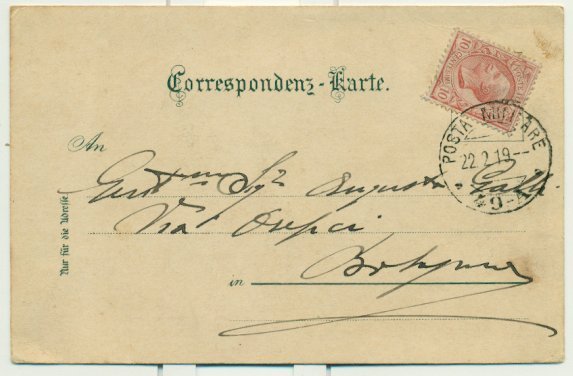 Correspondenz-Karte.
10
10
POSTA MILITARE
22.2.19
49
An
Gent.mo Sigr Augusto Galli
Via Orefici
in Bologna
Nur für die Adresse